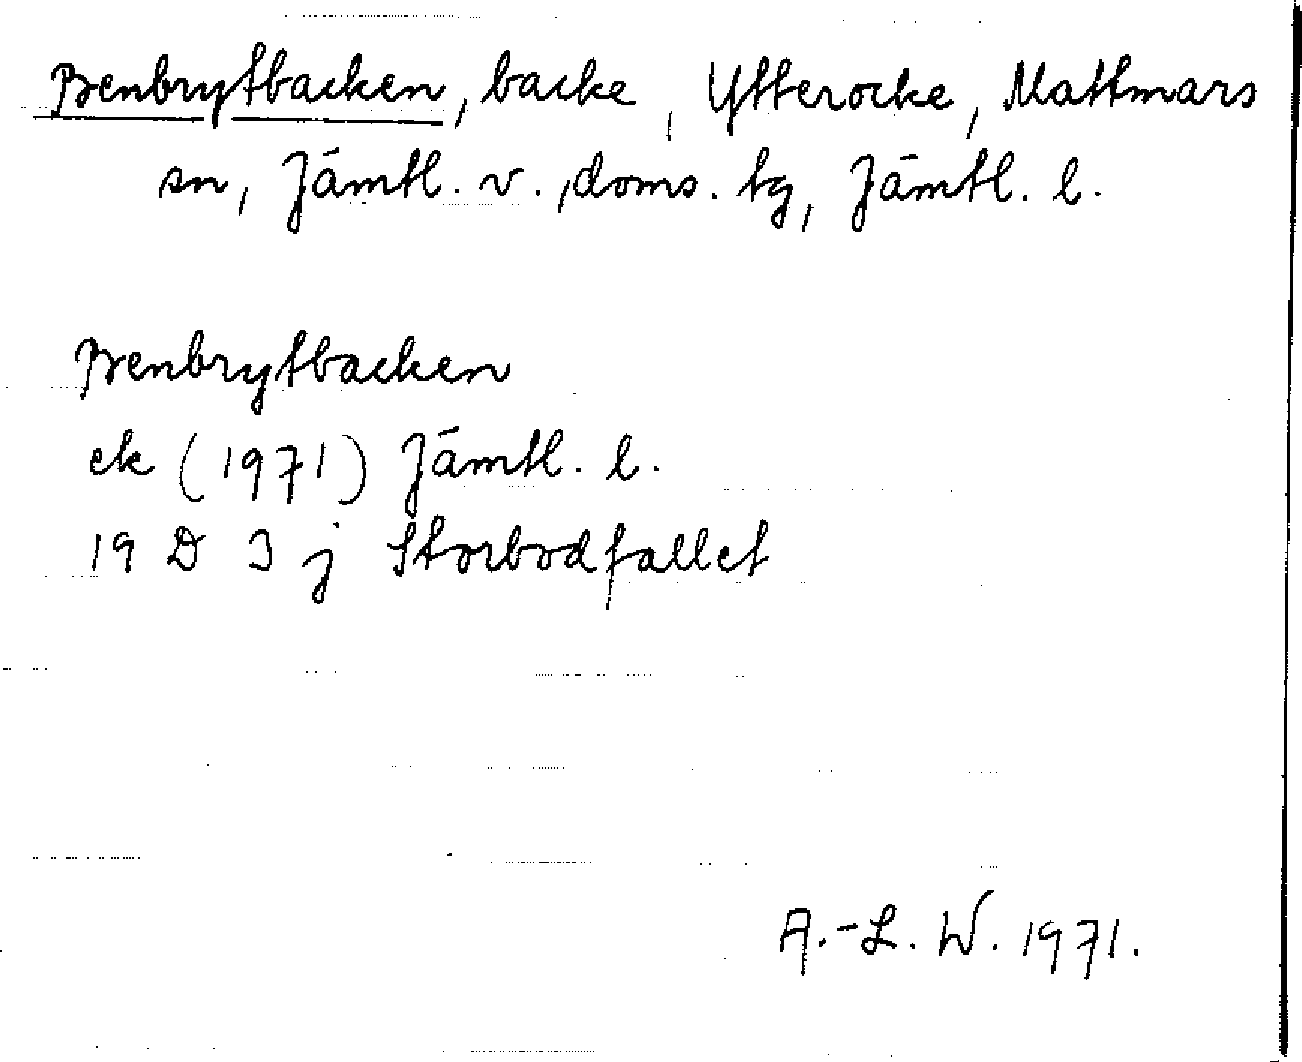 Benbrytbacken, backe, Ytterocke, Mattmars
sn, Jämtl. v., doms. tg, Jämtl. l.
Benbrytbacken
ek (1971) Jämtl. l.
19 D 3 j Storbodfallet
A.-L. W. 1971.